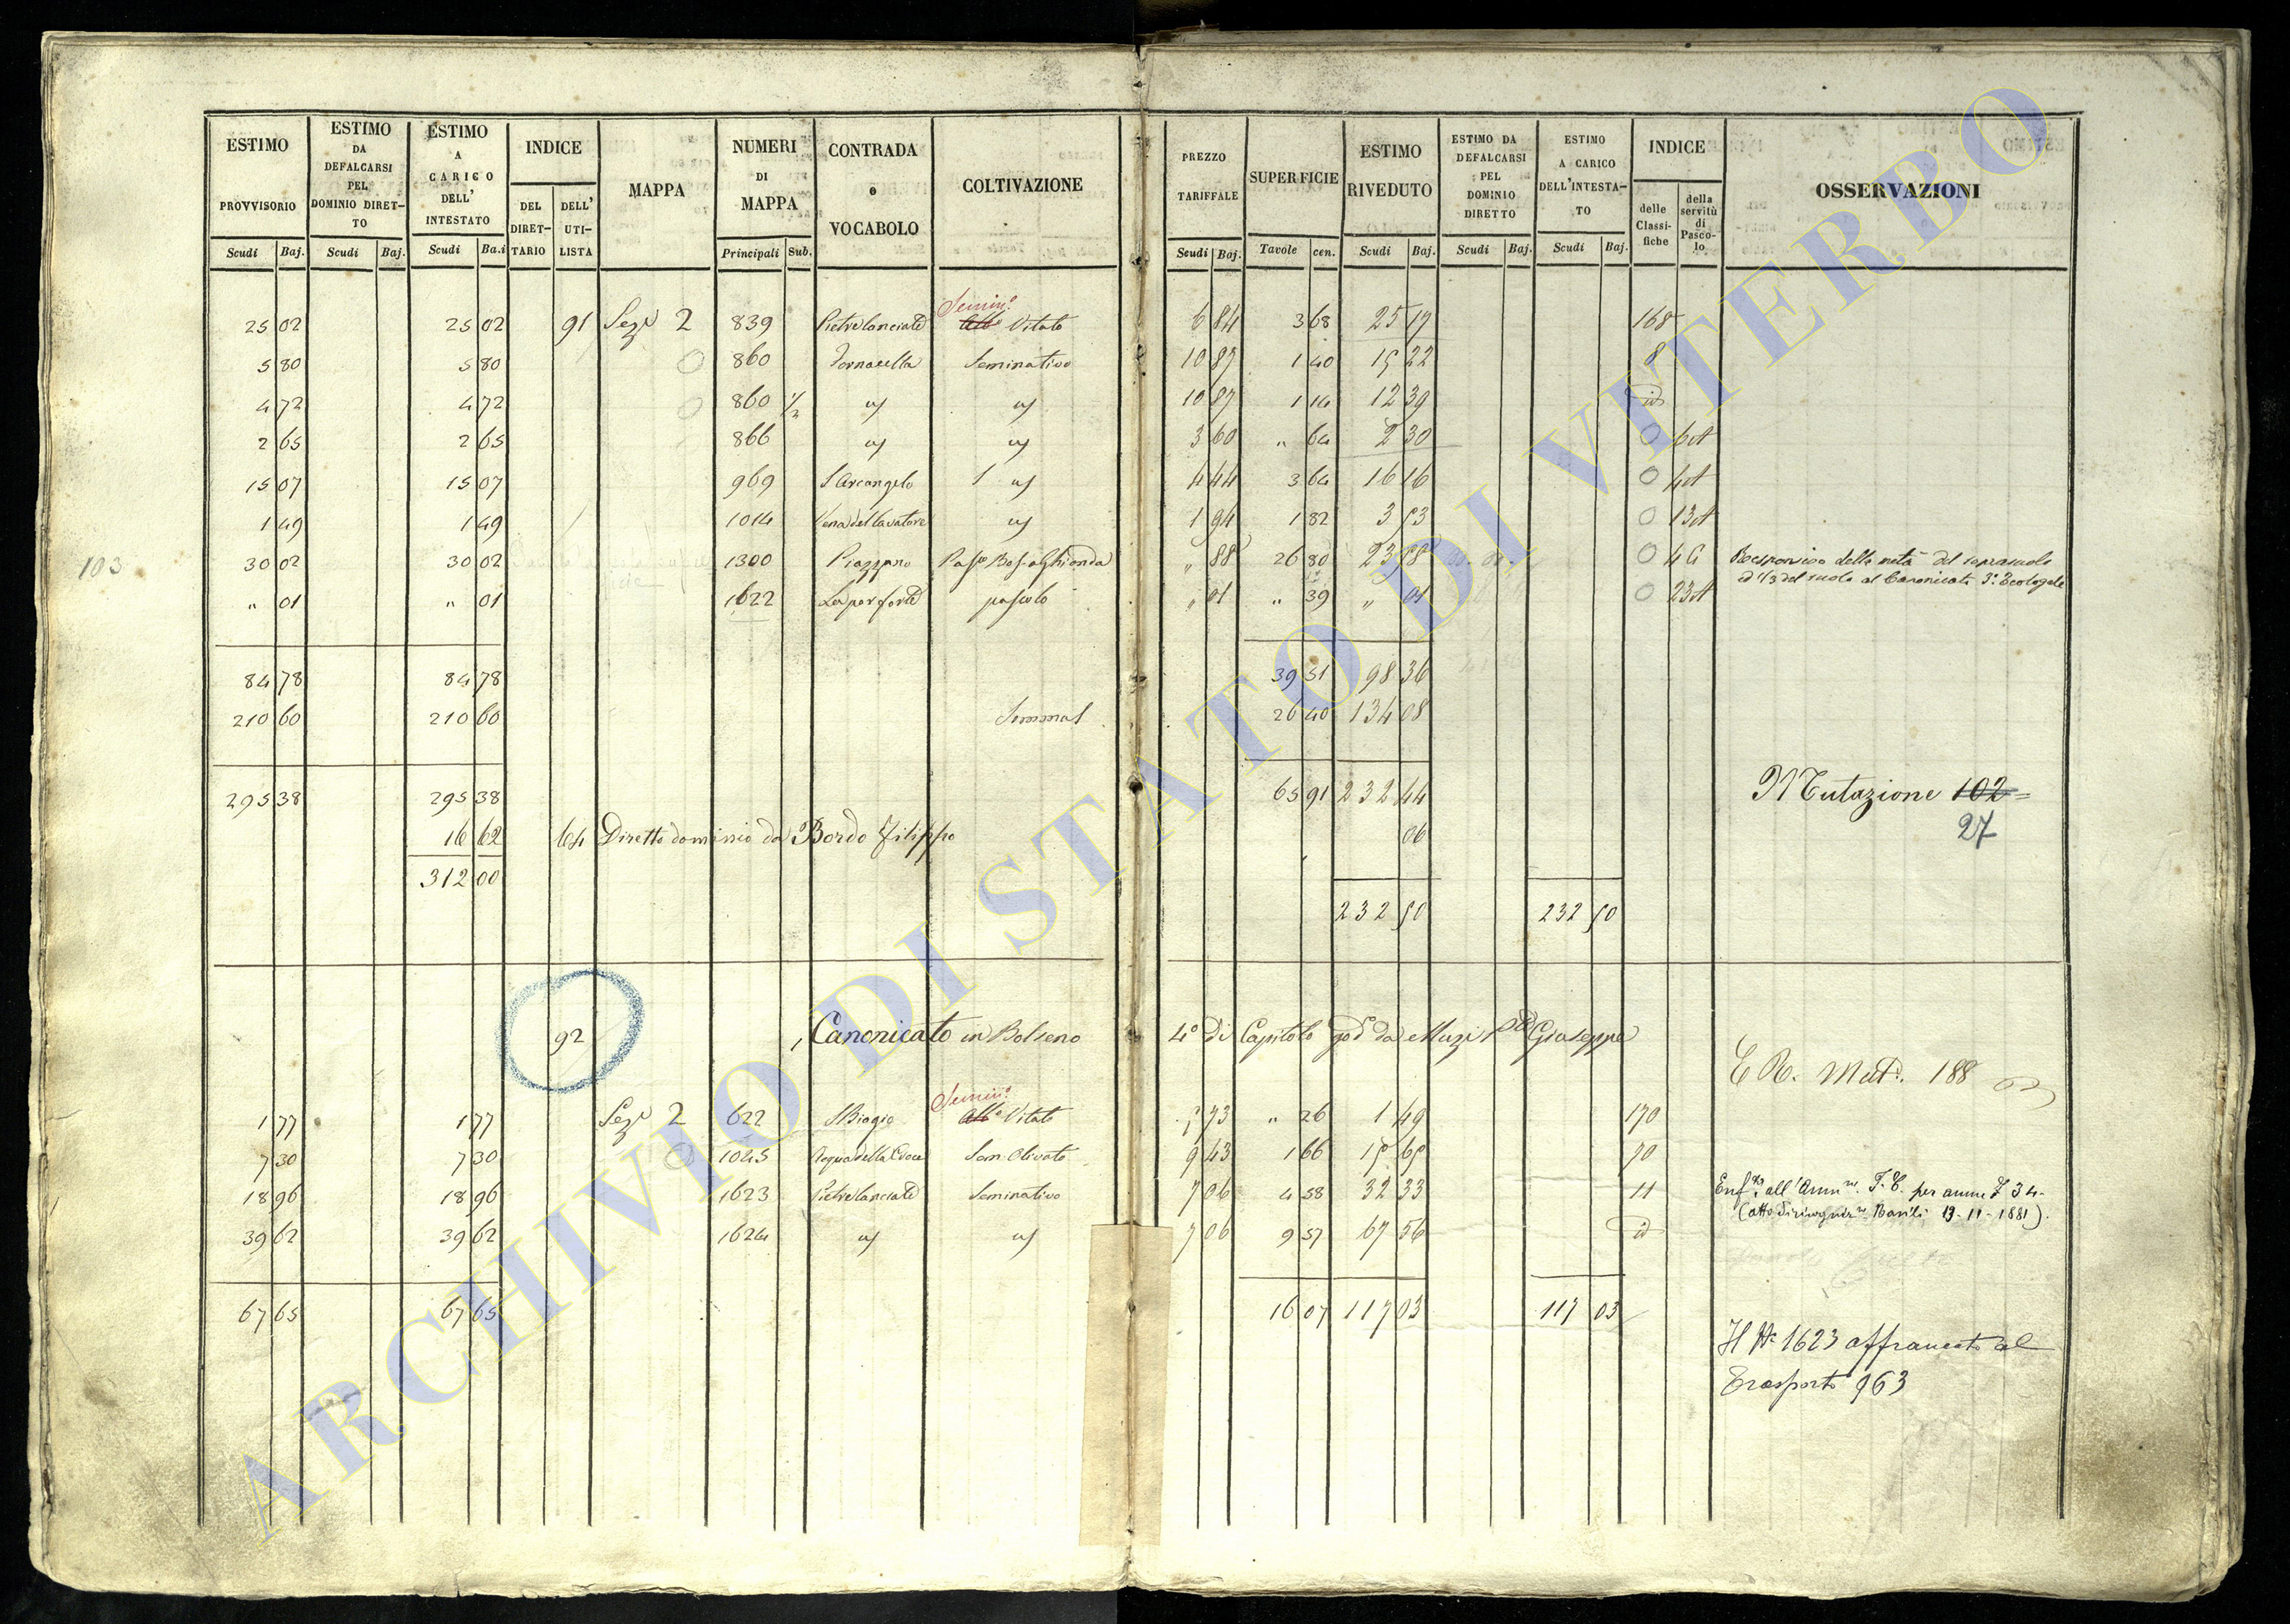 ESTIMO PROVVISORIO | ESTIMO DA DEFALCARSI PEL DOMINIO DIRETTO | ESTIMO A CARICO DELL' INTESTATO | INDICE | MAPPA | NUMERI DI MAPPA | CONTRADA o VOCABOLO | COLTIVAZIONE | PREZZO TARIFFALE | SUPERFICIE | ESTIMO RIVEDUTO | ESTIMO DA DEFALCARSI PEL DOMINIO DIRETTO | ESTIMO A CARICO DELL'INTESTATO | INDICE | OSSERVAZIONI
DEL DIRETTARIO | DELL' UTILISTA | delle Classifiche | della servitù di Pascolo
Scudi | Baj. | Scudi | Baj. | Scudi | Ba.i | Principali | Sub. | Scudi | Baj. | Tavole | cen. | Scudi | Baj. | Scudi | Baj. | Scudi | Baj.
Semin.o
25 02 | 25 02 | 91 | Sez.e 2 | 839 | Pietrelanciate | Vitato | 6 84 | 3 68 | 25 17 | 168
5 80 | 5 80 | 860 | Fornacella | Seminativo | 10 87 | 1 40 | 15 22 | 8
4 72 | 4 72 | 860 1/2 | 10 87 | 1 14 | 12 39 | id
2 65 | 2 65 | 866 | 3 60 | " 64 | 2 30 | 6A
15 07 | 15 07 | 969 | S Arcangelo | 4 44 | 3 64 | 16 16 | 4A
1 49 | 1 49 | 1014 | 1 94 | 1 82 | 3 53 | 13A
103
30 02 | 30 02 | 1300 | Piazzano | " 88 | 26 80 | 23 58 | 4 | della metà del soprasuolo
ed 1/3 del suolo al Canonicato 3.o Teologale
" 01 | " 01 | 1622 | pascolo | " 01 | " 39 | " 01 | 23A
84 78 | 84 78 | 39 51 | 98 36
210 60 | 210 60 | 26 40 | 134 08
295 38 | 295 38 | 65 91 | 232 44 | Mutazione 102 =
27
16 62 | 64 | Diretto dominio da Bordo Filippo | 06
312 00
232 50 | 232 50
92 | Canonicato in Bolseno | 4.o di Capitolo god.o da Muzi Giuseppe
E R. Mut. 188
Semin.o
1 77 | 1 77 | Sez.e 2 | 622 | S Biagio | Vitato | 5 73 | " 26 | 1 49 | 170
7 30 | 7 30 | 1045 | Acqua della Croce | Sem. Olivato | 9 43 | 1 66 | 15 65 | 70
18 96 | 18 96 | 1623 | Pietrelanciate | Seminativo | 7 06 | 4 58 | 32 33 | 11 | all'Amm.ne F. C. per annue £ 34-
Basili 19-11-1881).
39 62 | 39 62 | 1624 | 7 06 | 9 57 | 67 56 | id
67 65 | 67 65 | 16 07 | 117 03 | 117 03
Il N.o 1623 affrancato al
Trasporto 963
ARCHIVIO DI STATO DI VITERBO